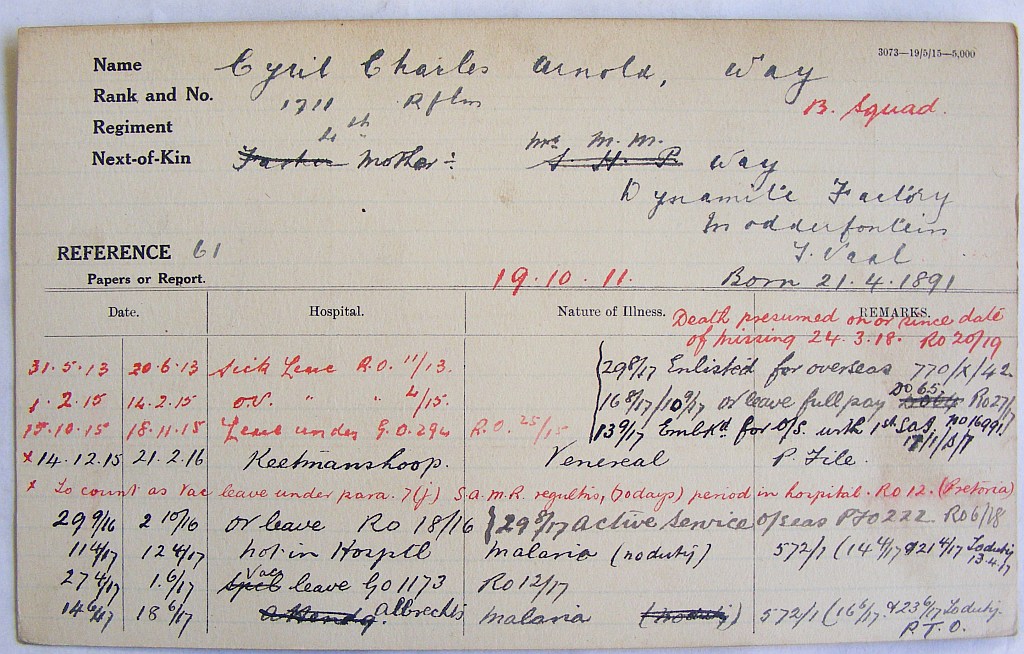 3073—19/5/15—5,000
Name Cyril Charles Arnold, Way
Rank and No. 1711 Rflm B. Squad.
Regiment 4th
Next-of-Kin Father Mother:- Mrs M. M. S. H. P. Way
Dynamite Factory
Modderfontein
T. Vaal
REFERENCE 61
Papers or Report. 19.10.11. Born 21.4.1891
Date. Hospital. Nature of Illness. REMARKS.
Death presumed on or since date
of missing 24.3.18. RO 20/19
31.5.13 20.6.13 Sick Leave R.O. 11/13. 29 8/17 Enlisted for overseas 770/X/42
1.2.15 14.2.15 O.V. " " 4/15. 16 8/17/10 9/17 Or leave full pay DO 657 RO 27/17
15.10.15 18.11.15 Leave under G.O. 294 R.O. 25/15 13 9/17 Embkd for O/S. with 1st SAI. No 16991
x 14.12.15 21.2.16 Keetmanshoop. Venereal P. File.
x To count as Vac leave under para. 7(j) S.A.M.R. regultns, (70 days) period in hospital. RO 12. (Pretoria)
29 9/16 2 10/16 Or leave RO 18/16 29 8/17 Active Service O/seas PF0222. RO 6/18
11 4/17 12 4/17 not in Hosptl malaria (no duty) 572/1 (14 4/17 & 21 4/17 To duty
13.4.17
27 4/17 1.6/17 Vac leave GO 1173 RO 12/17
14 6/17 18 6/17 Albrechts malaria (no duty) 572/1 (16 6/17. & 23 6/17 To duty.
P.T.O.